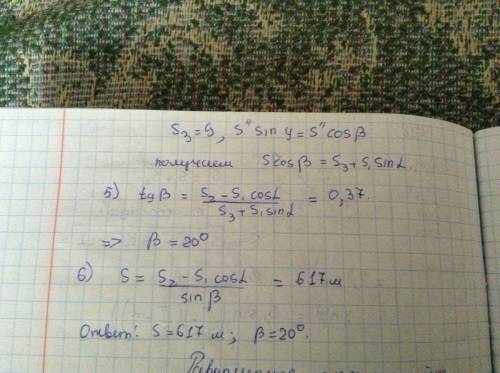 S₃ = y, S" sin y = S" cosβ
получаем S cosβ = S₃ + S₁ sinα
5) tg β = (S₂ – S₁ cosα)/(S₃ + S₁ sinα) = 0,37
=> β = 20⁰
6) S = (S₂ – S₁ cosα)/(sin β) = 617 м
Ответ: S = 617 м; β = 20⁰.